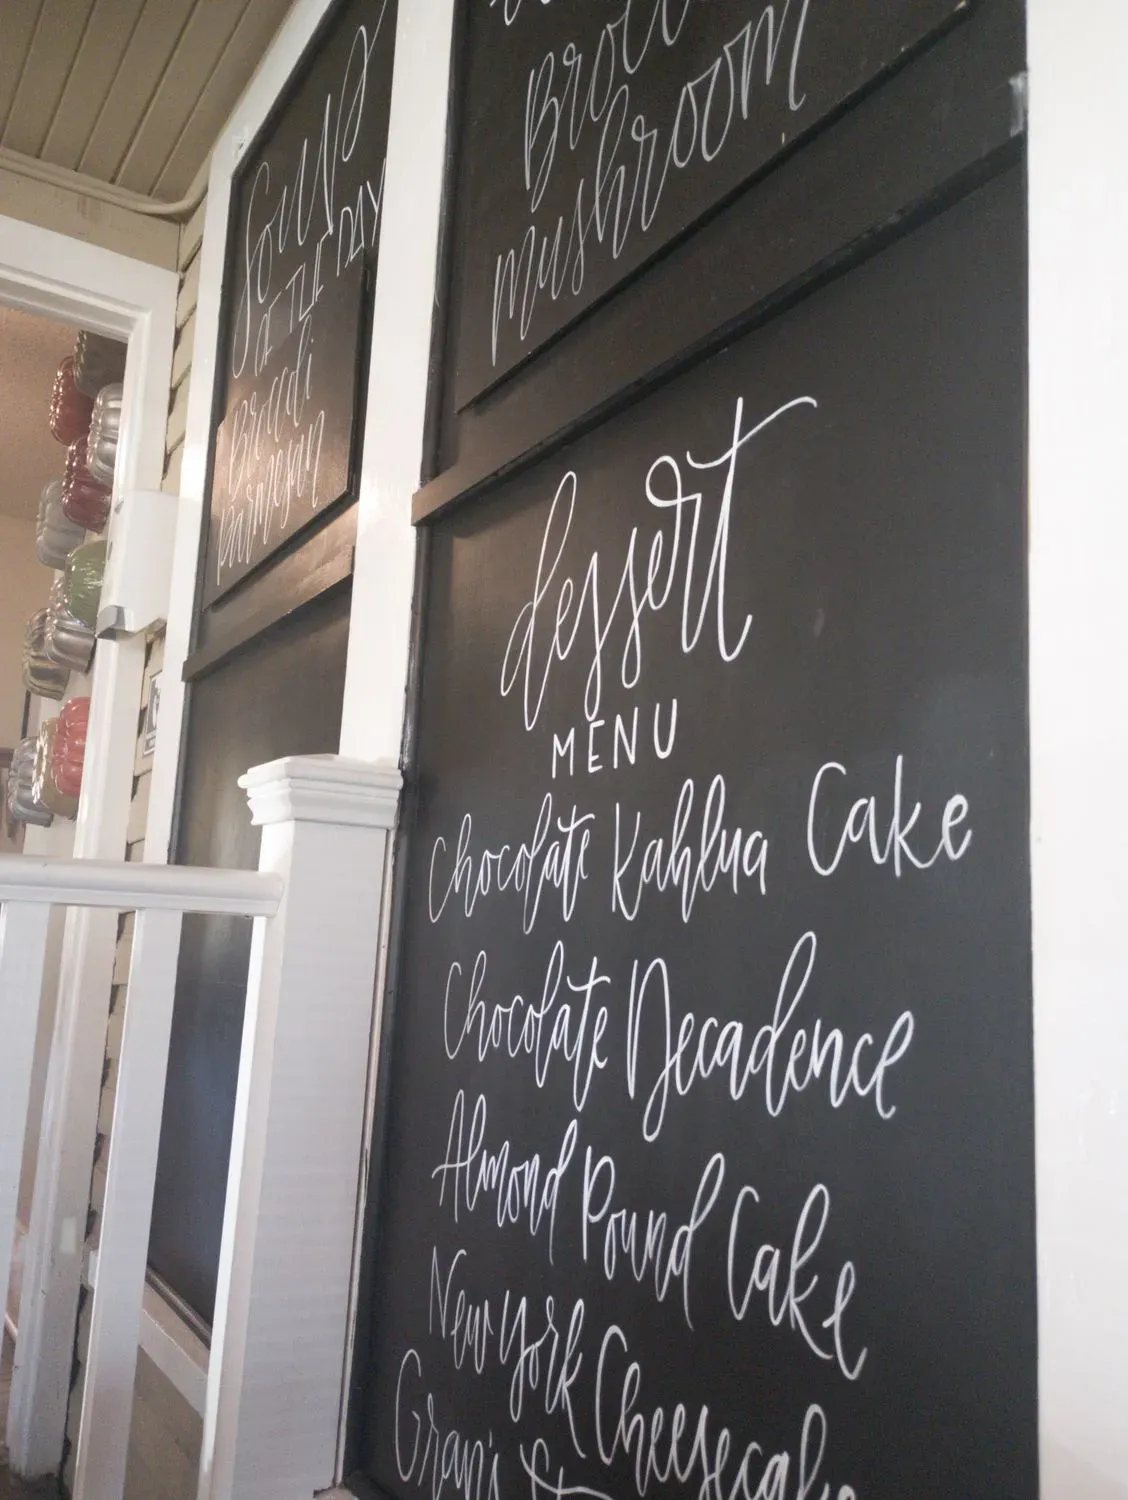 Soup
OF THE DAY
Broccoli
Parmesan
mushroom
dessert
MENU
Chocolate Kahlua Cake
Chocolate Decadence
Almond Pound Cake
New York Cheesecake